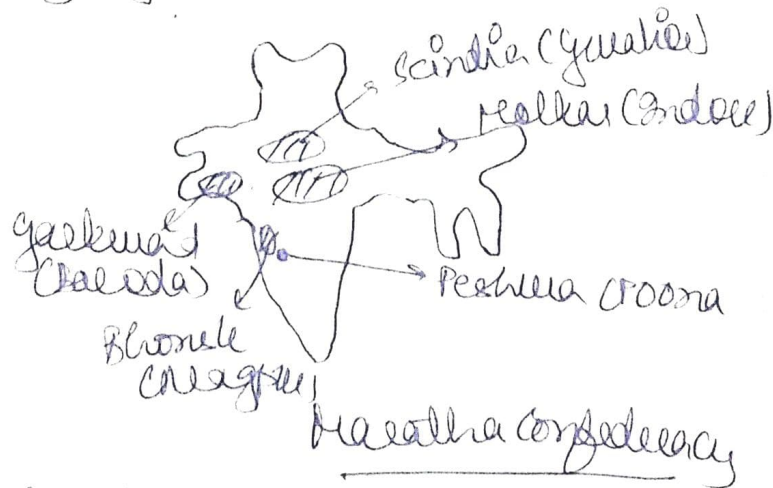 Scindia (Gwalior)
Holkar (Indore)
Gaekwad
(Baroda)
Peshwa (Poona
Bhonsle
(Nagpur)
Maratha Confederacy